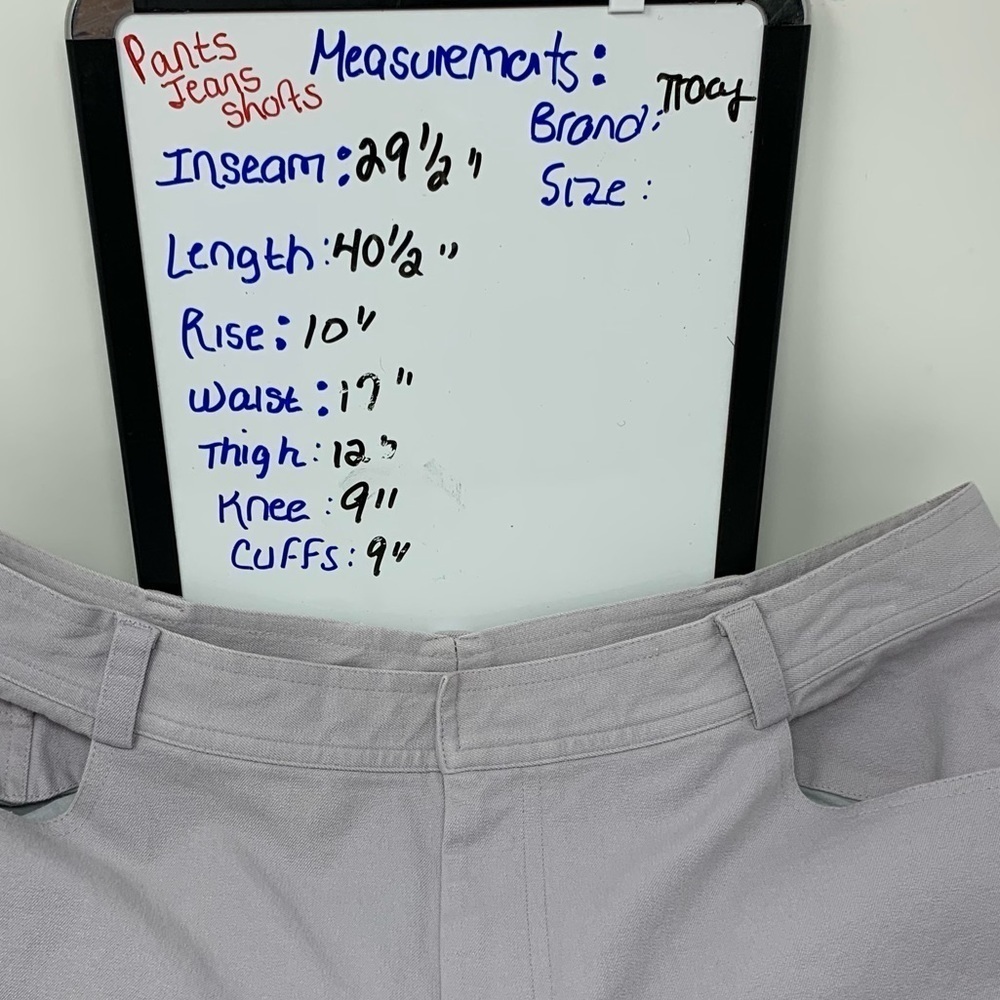 Pants
Jeans
Shorts
Measurements:
Brand: Tracy
Size:
Inseam: 29 1/2"
Length: 40 1/2"
Rise: 10"
Waist: 17"
Thigh: 12"
Knee: 9"
Cuffs: 9"